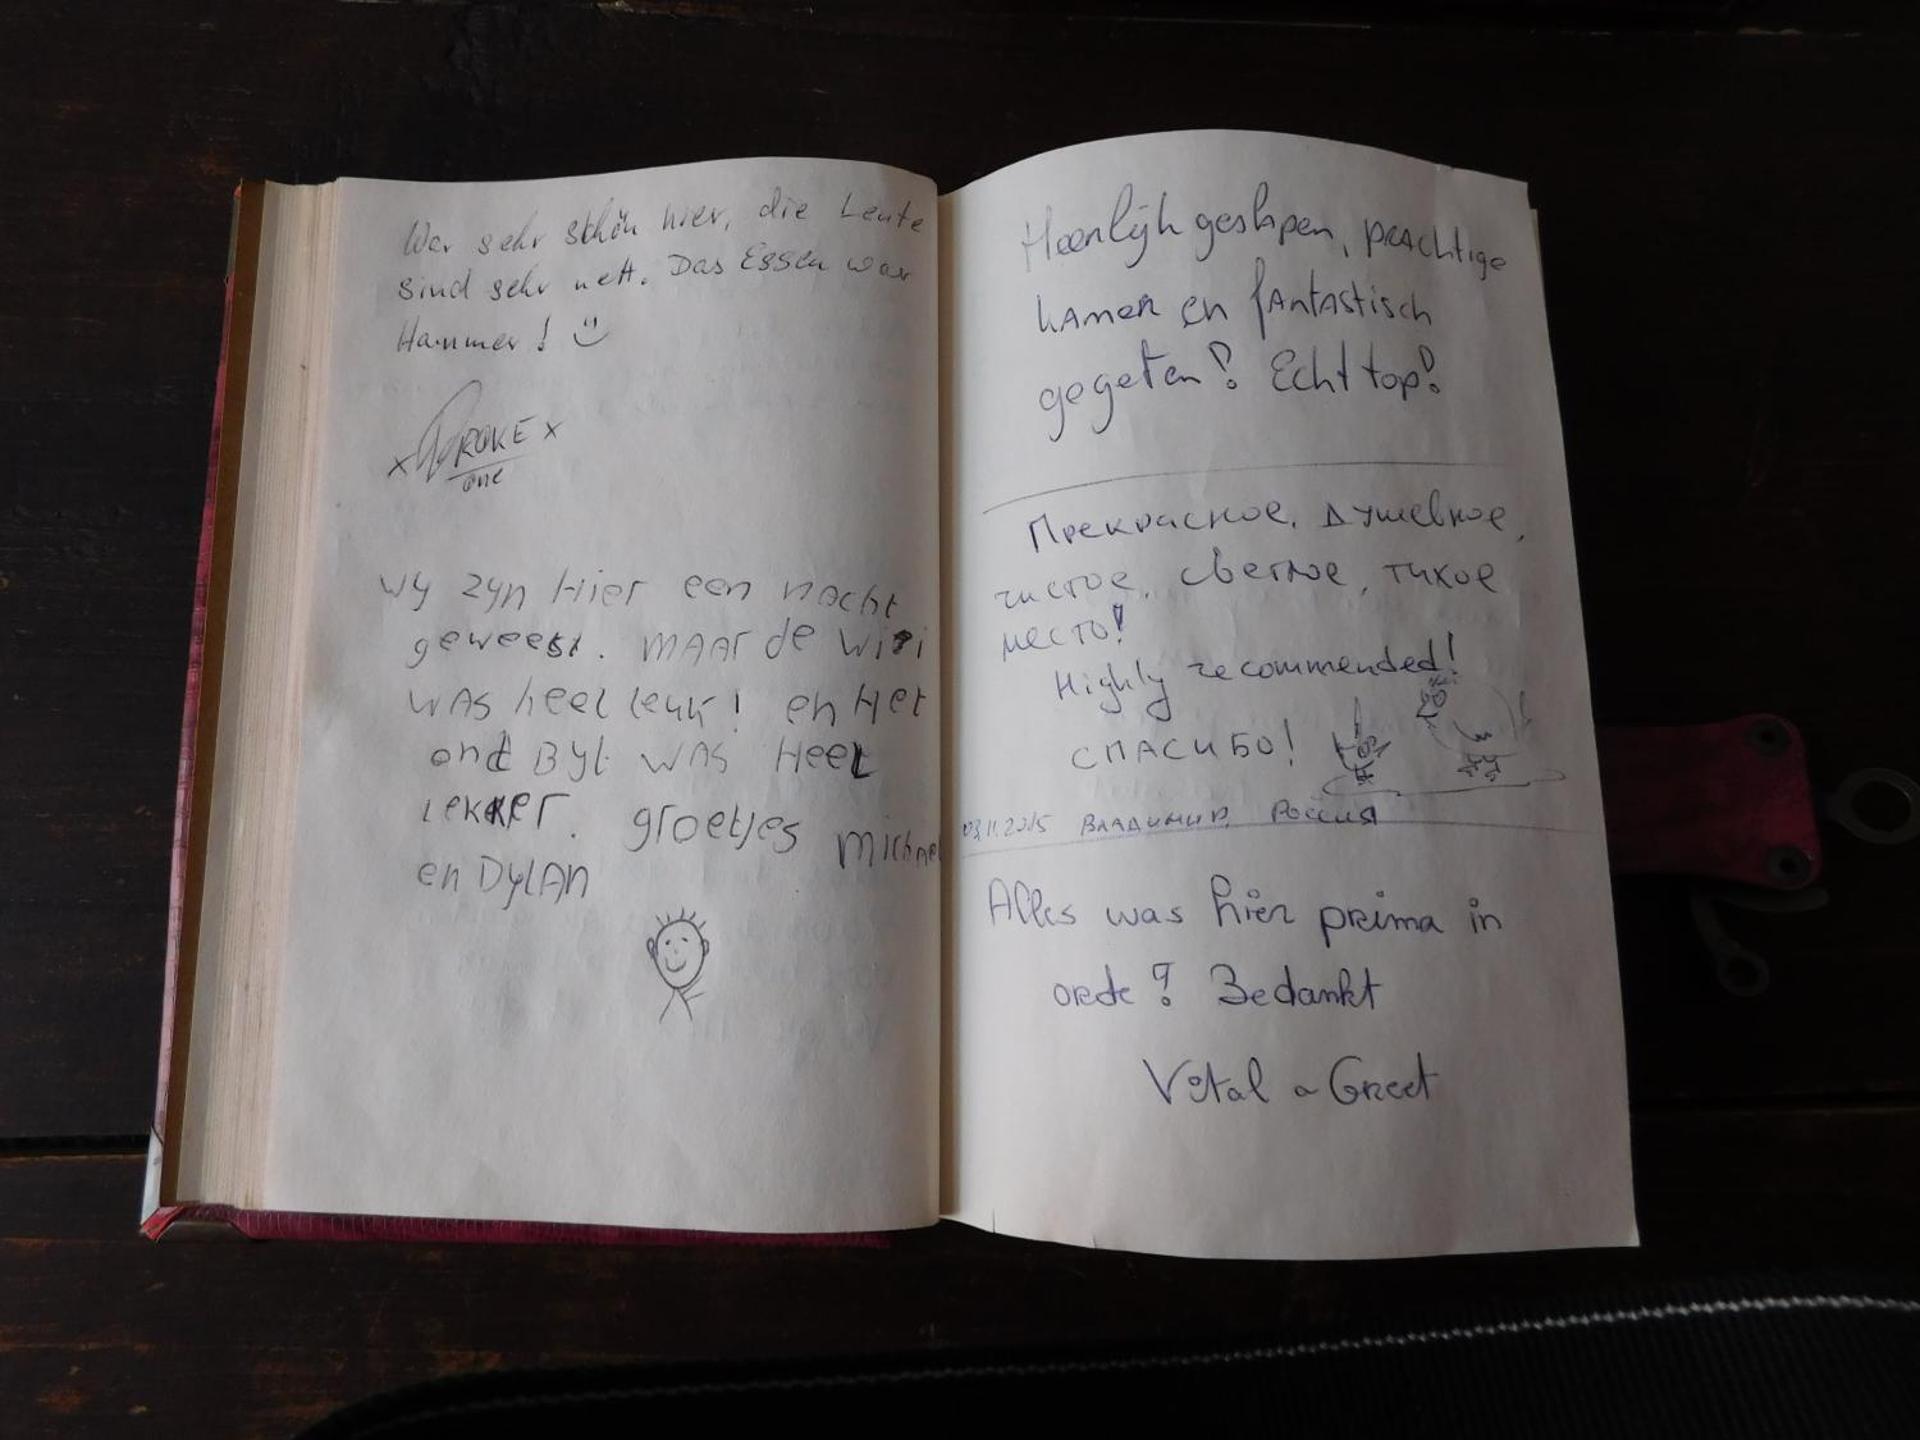 War sehr schön hier, die Leute
sind sehr nett. Das Essen war
Hammer!
x x
one
wy zyn Hier een nacht
geweest. MAAr de wifi
WAS heel leuk! en Het
ont Byt WAS HeeL
lekker. groetjes michael
en DylAn
Heerlijk geslapen, prachtige
kamer en fantastisch
gegeten! Echt top!
Прекрасное, душевное,
чистое, светлое, тихое
место!
Highly recommended!
СПАСИБО!
03.11.2015 Владимир, Россия
Alles was hier prima in
orde! Bedankt
Vital Greet